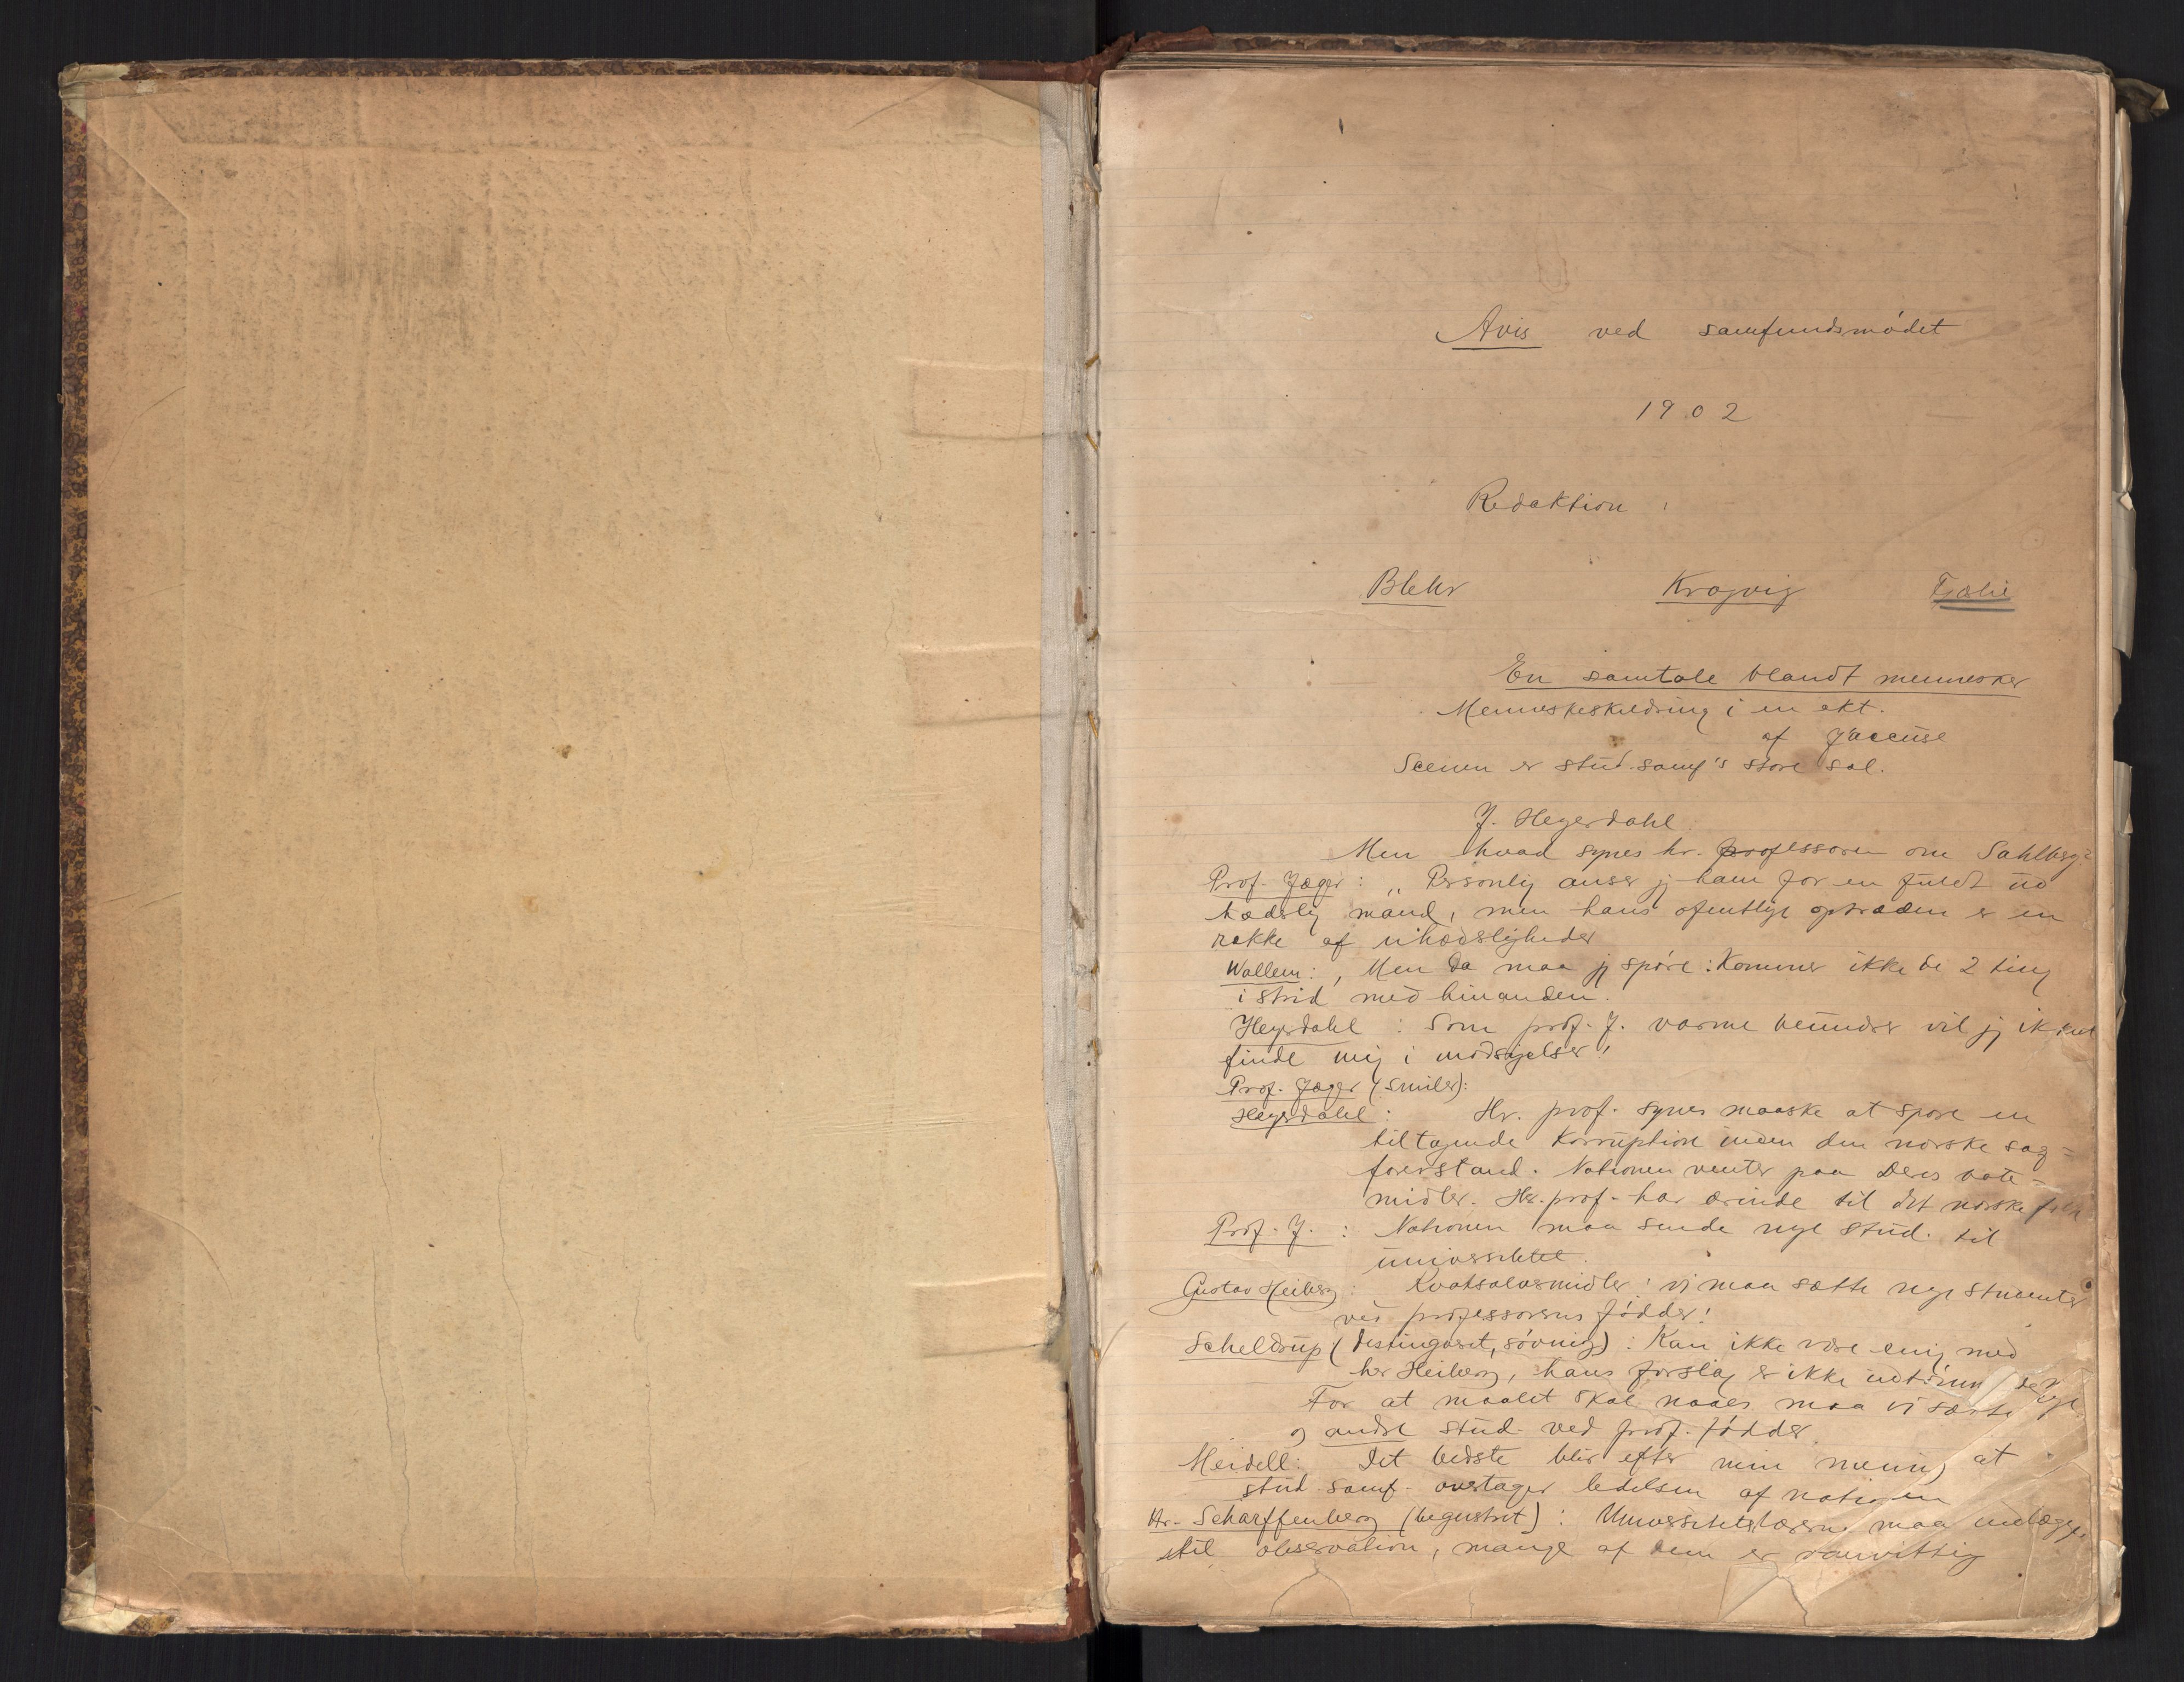 Avis ved samfundsmødet
1902
Redaktion:
Blehr Krogvig Fjælie
En samtale blandt mennesker
Menneskeskildring i en akt.
af J'accuse
Scenen er stud. samf's store sal.
J. Heyerdahl:
Men hvad synes hr. professoren om Sahlberg?
Prof. Jæger: „Personlig anser jg ham for en fuldt ud
hæderlig mand, men hans offentlige optræden er en
række af uhæderligheder
Wallem: Men da maa jg spørre: Kommer ikke de 2 ting
i strid med hinanden.
Heyerdahl: Som prof. J. varme beundrer vil jg ikke
finde mig i modsigelser!
Prof. Jæger (smiler):
Heyerdahl: Hr. prof. synes maaske at spore en
tiltagende Korruption inden den norske sag=
førerstand. Nationen venter paa Deres bote-
midler. Hr. prof. har ærinde til det norske folk
Prof. J.: Nationen maa sende nye stud. til
universitetet.
Gustav Heiberg: Kvaksalvermidler! vi maa sætte nye studenter
ved professorens fødder!
Scheldrup (distingveret, søvnig): Kan ikke være enig med
hr Heiberg, hans forslag er ikke
For at maalet skal naaes maa vi sætte nye
og andre stud. ved prof. fødder
Meidell: Det bedste blir efter min mening at
stud. samf. overtager ledelsen af nationen
Hr. Scharffenberg (begeistret): Universitetslærerne maa indlægges
til observation, mange af dem er vanvittig